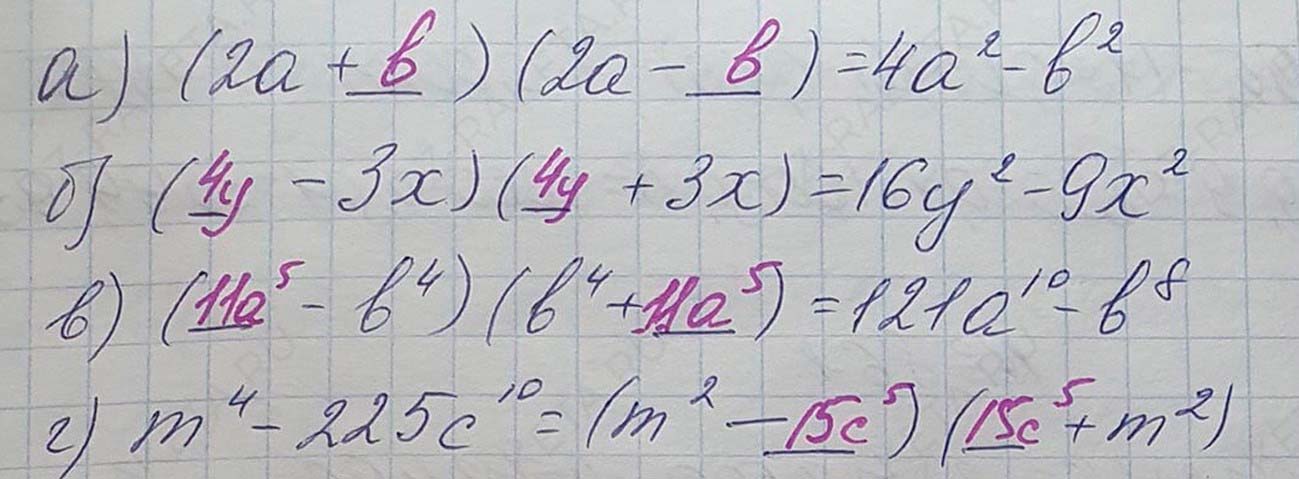 а) (2a + b)(2a - b) = 4a² - b²
б) (4y - 3x)(4y + 3x) = 16y² - 9x²
в) (11a⁵ - b⁴)(b⁴ + 11a⁵) = 121a¹⁰ - b⁸
г) m⁴ - 225c¹⁰ = (m² - 15c⁵)(15c⁵ + m²)